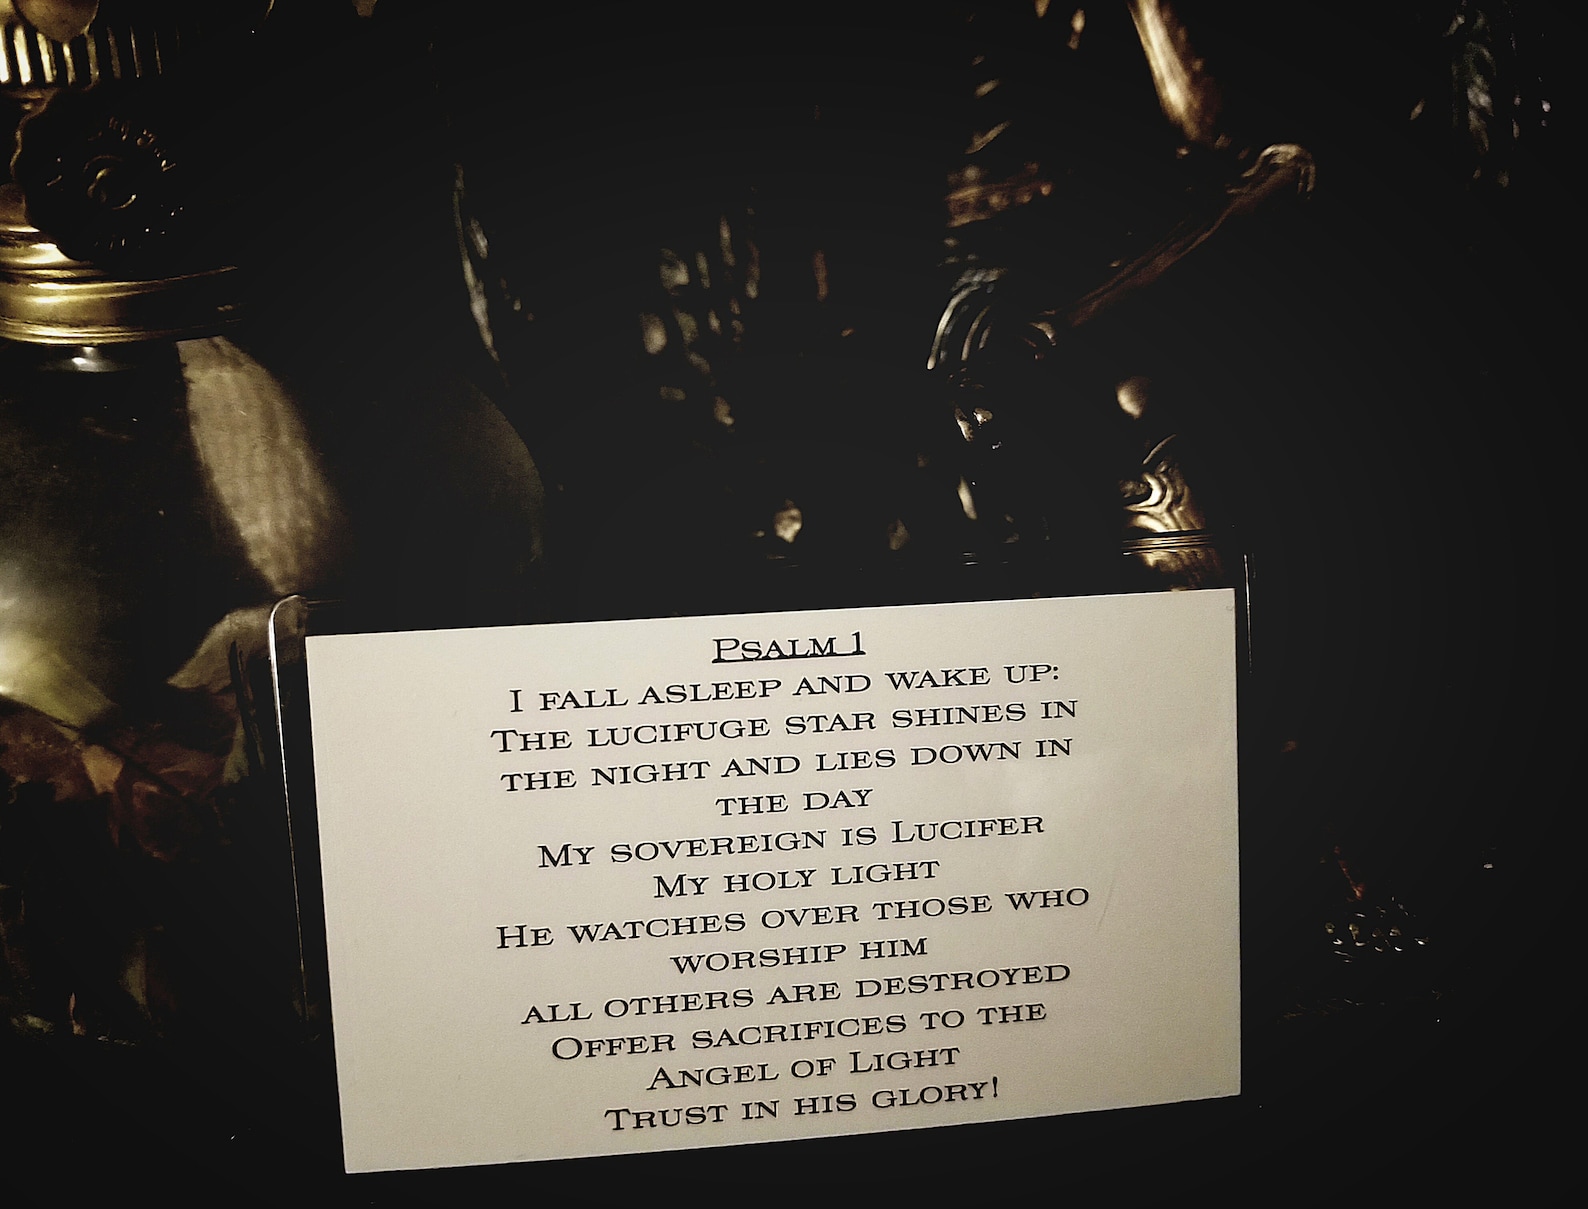 PSALM 1
I FALL ASLEEP AND WAKE UP:
THE LUCIFUGE STAR SHINES IN
THE NIGHT AND LIES DOWN IN
THE DAY
MY SOVEREIGN IS LUCIFER
MY HOLY LIGHT
HE WATCHES OVER THOSE WHO
WORSHIP HIM
ALL OTHERS ARE DESTROYED
OFFER SACRIFICES TO THE
ANGEL OF LIGHT
TRUST IN HIS GLORY!